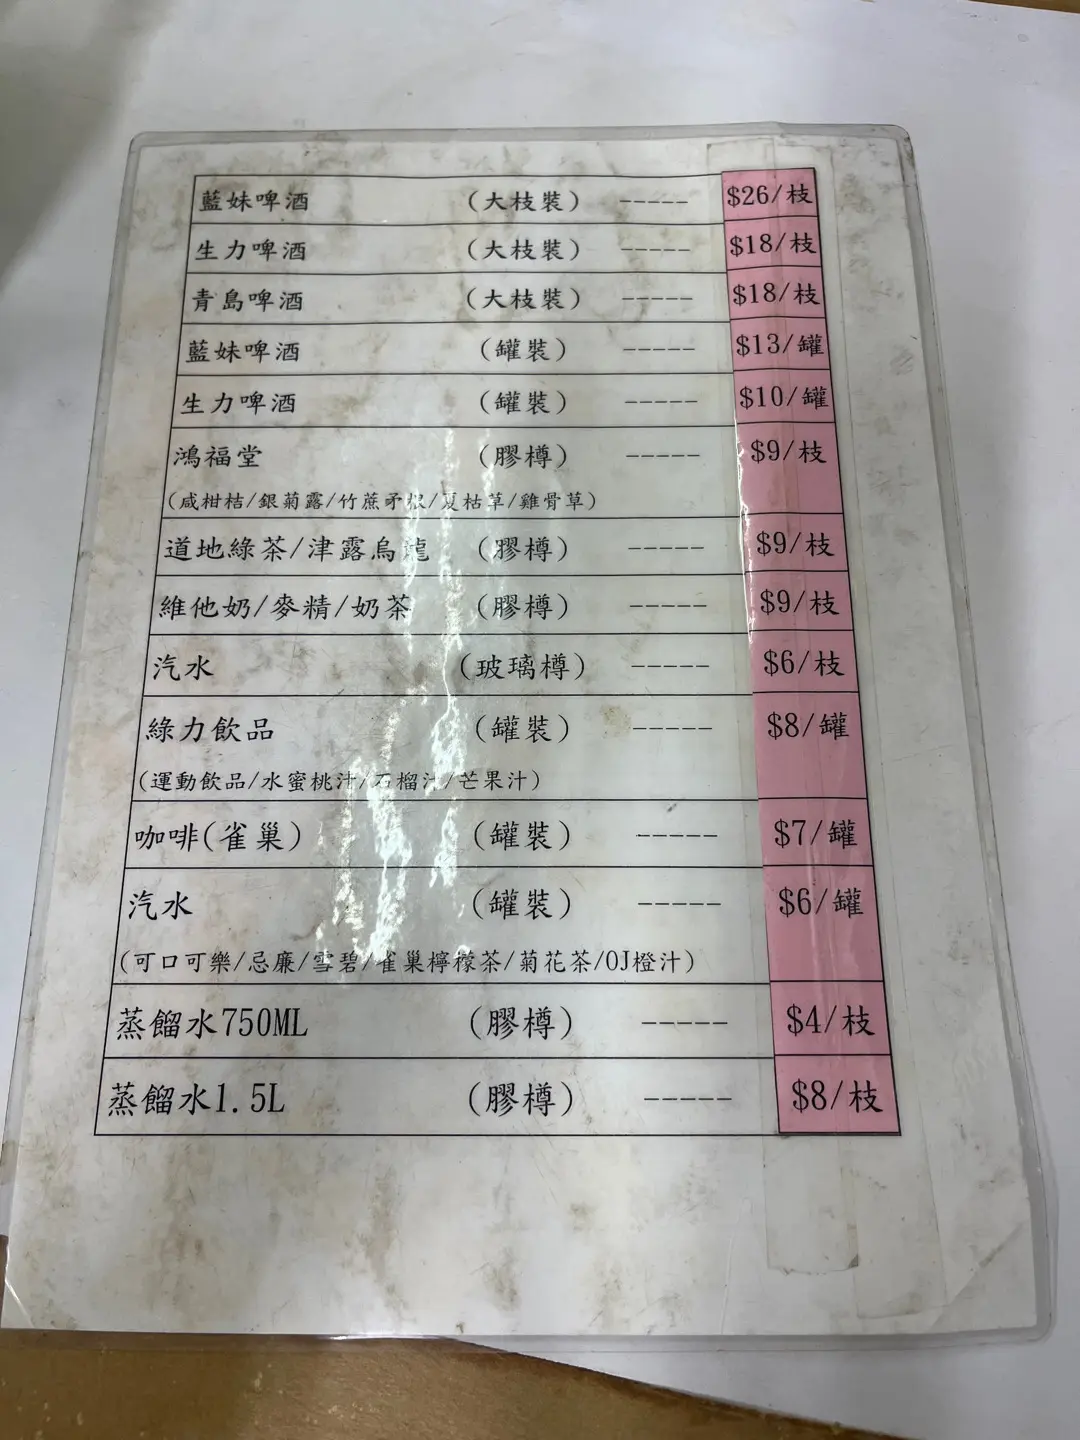 藍妹啤酒 (大枝裝) ----- $26/枝
生力啤酒 (大枝裝) ----- $18/枝
青島啤酒 (大枝裝) ----- $18/枝
藍妹啤酒 (罐裝) ----- $13/罐
生力啤酒 (罐裝) ----- $10/罐
鴻福堂 (膠樽) ----- $9/枝
(咸柑桔/銀菊露/竹蔗矛根/夏枯草/雞骨草)
道地綠茶/津露烏龍 (膠樽) ----- $9/枝
維他奶/麥精/奶茶 (膠樽) ----- $9/枝
汽水 (玻璃樽) ----- $6/枝
綠力飲品 (罐裝) ----- $8/罐
(運動飲品/水蜜桃汁/石榴汁/芒果汁)
咖啡(雀巢) (罐裝) ----- $7/罐
汽水 (罐裝) ----- $6/罐
(可口可樂/忌廉/雪碧/雀巢檸檬茶/菊花茶/OJ橙汁)
蒸餾水750ML (膠樽) ----- $4/枝
蒸餾水1.5L (膠樽) ----- $8/枝